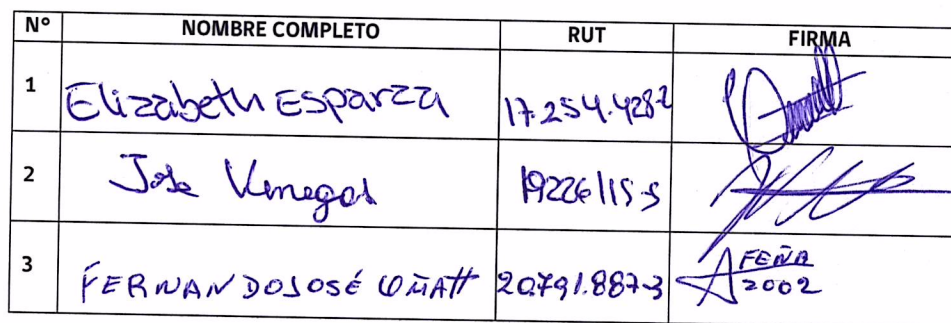 N° NOMBRE COMPLETO RUT FIRMA
1 Elizabeth Esparza 17.254.428-2
2 Jose Venegas 19226115-5
3 FERNANDO JOSÉ 20.791.887-3 FEÑA
2002